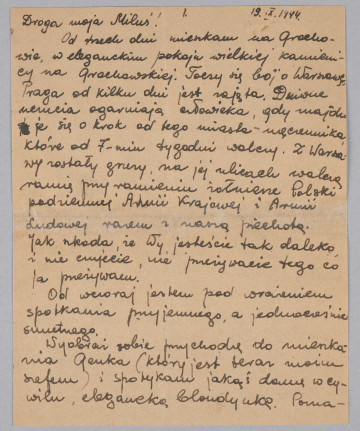 1. 19.IX.1944.
Droga moja Miluś!
Od trzech dni mieszkam na Grocho-
wie, w eleganckim pokoju wielkiej kamieni-
cy na Grochowskiej. Toczy się bój o Warszawę.
Praga od kilku dni jest zajęta. Dziwne
uczucia ogarniają człowieka, gdy znajdu
je się o krok od tego miasta-męczennika,
które od 7-miu tygodni walczy. Z Warsza
wy zostały gruzy, na jej ulicach walczą
ramię przy ramieniu żołnierze Polski
podziemnej Armii Krajowej i Armii
Ludowej razem z naszą piechotą.
Jak szkoda, że Wy jesteście tak daleko
i nie czujecie, nie przeżywacie tego co
ja przeżywam.
Od wczoraj jestem pod wrażeniem
spotkania przyjemnego, a jednocześnie
smutnego.
Wyobraź sobie przychodzę do mieszka
nia Genka (który jest teraz moim
szefem) i spotykam jakąś damę w cy-
wilu, elegancką blondynkę. Pozna-